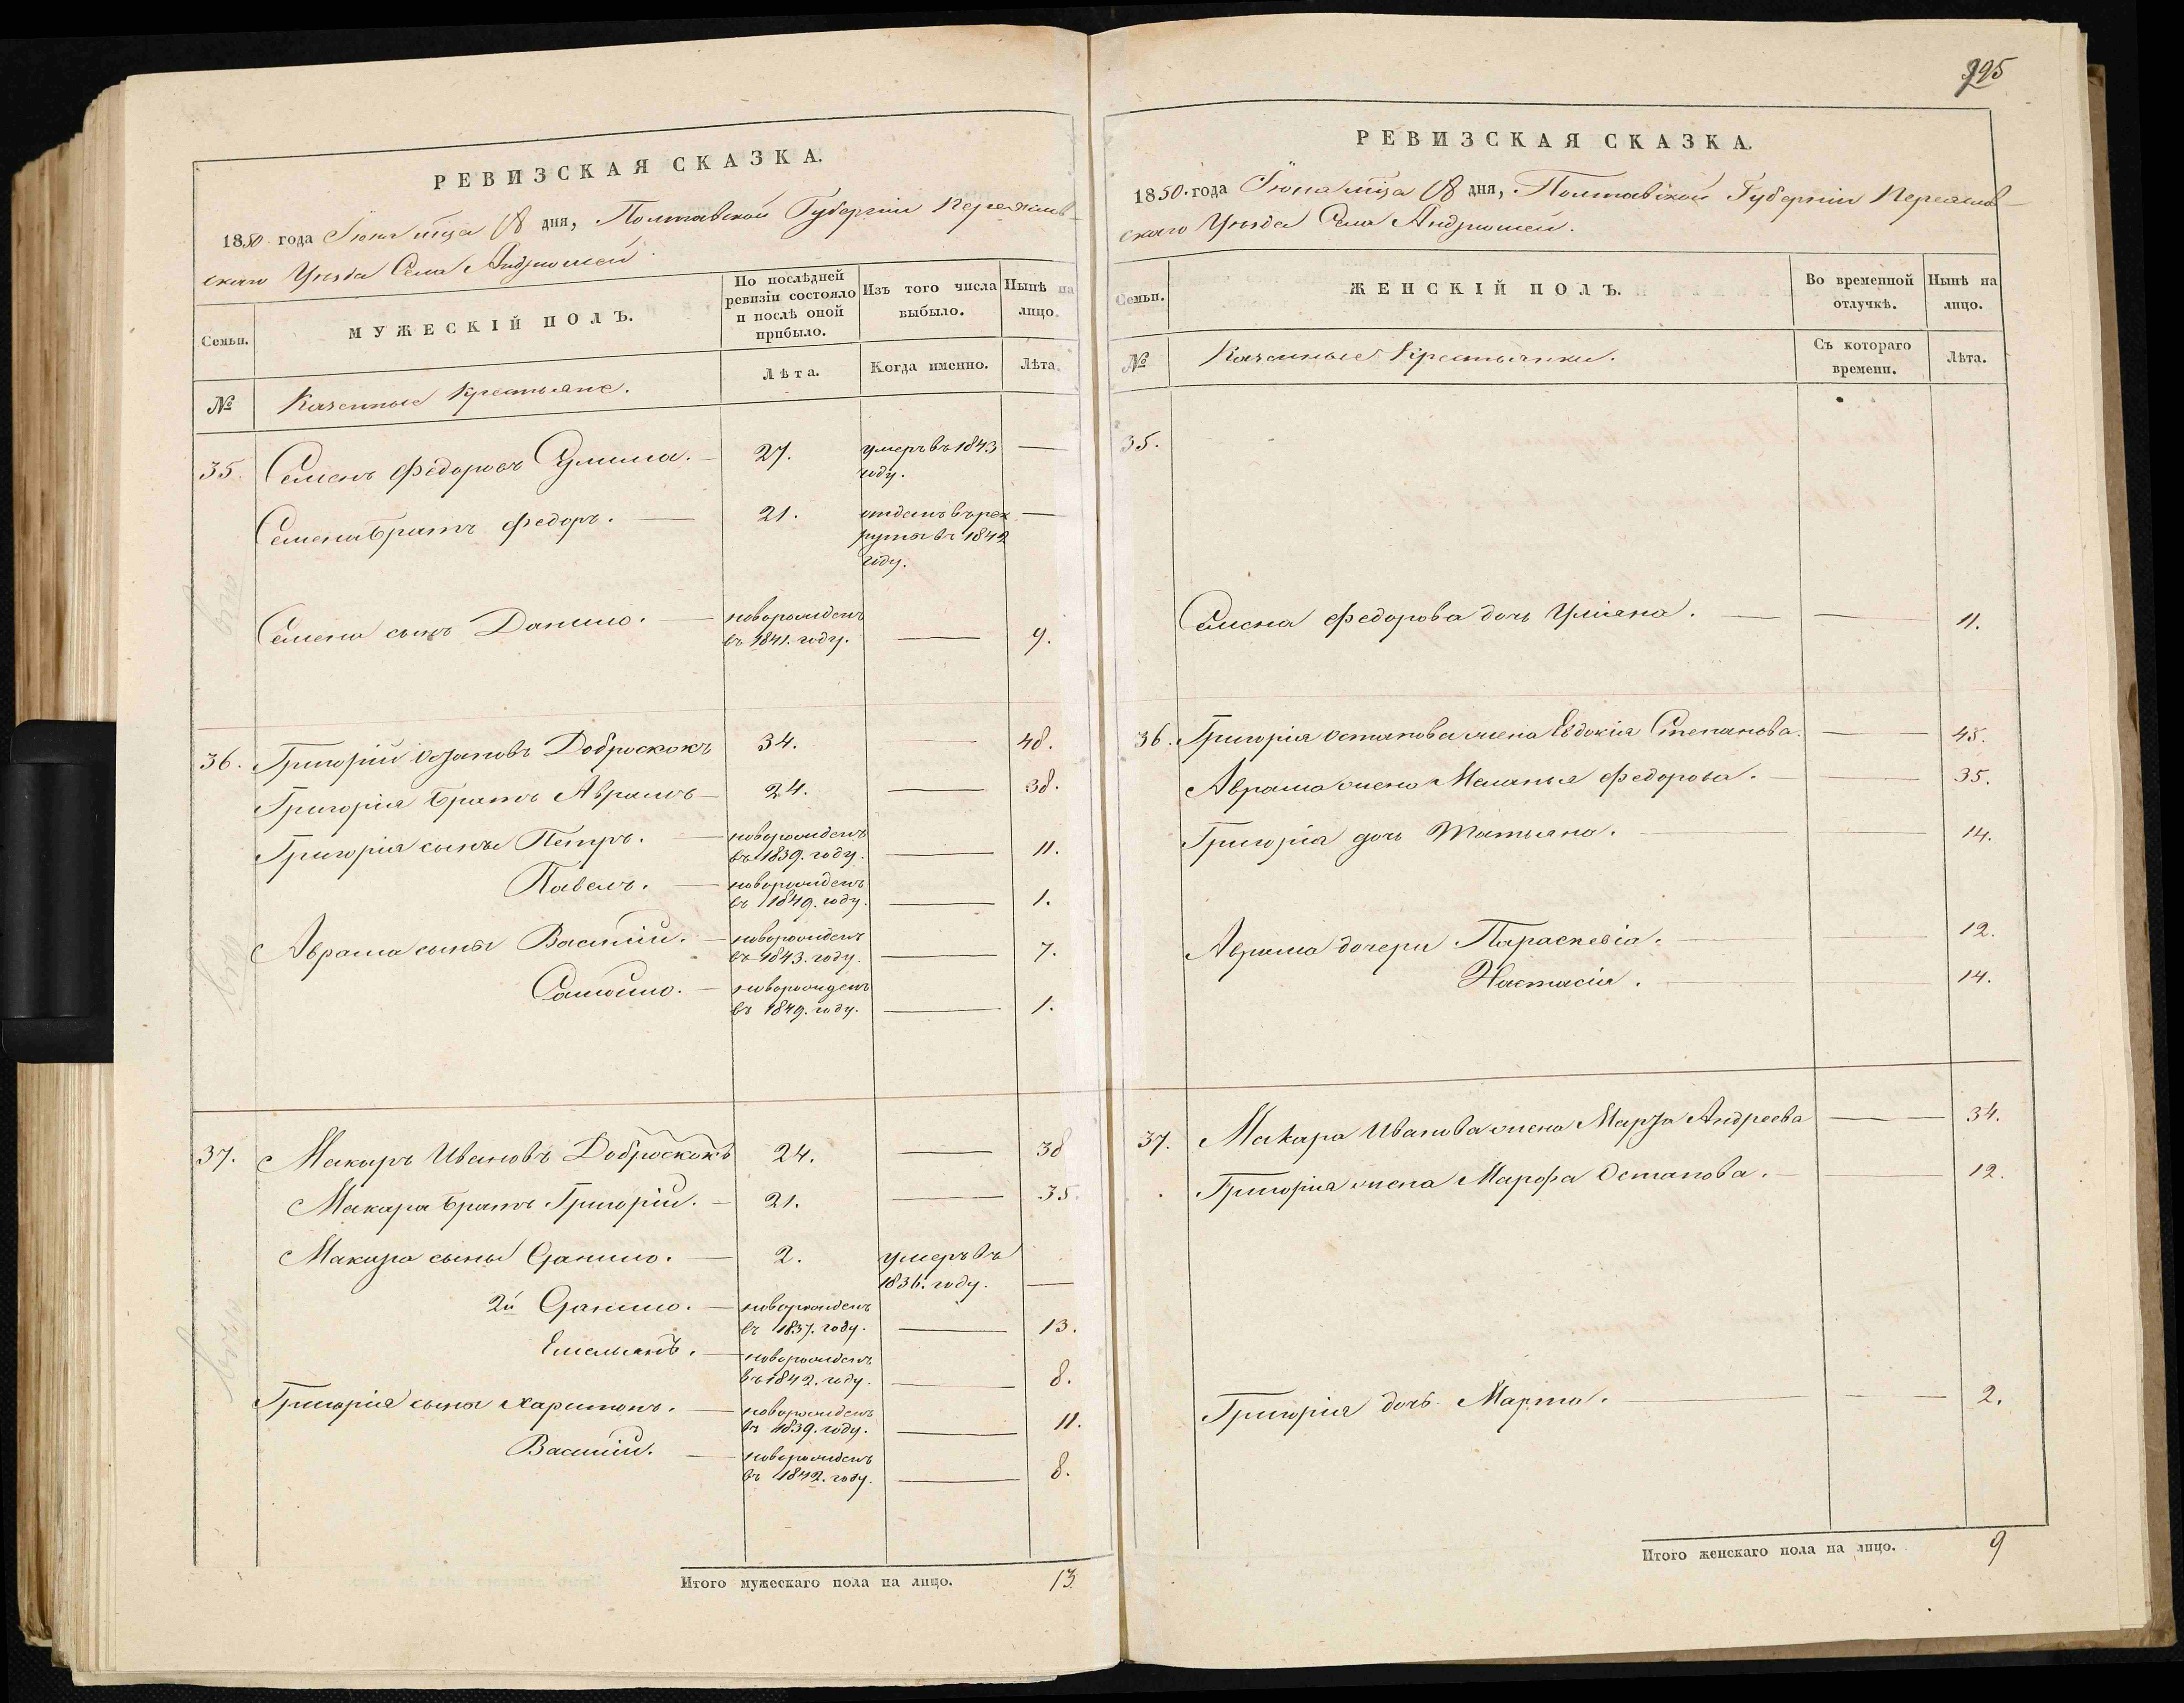 РЕВИЗСКАЯ СКАЗКА.
1850 года Іюня мца 18 дня, Полтавской Губерніи Переяслов-
скаго Уѣзда Села Андрюшей.
Семьи.
МУЖЕСКІЙ ПОЛЪ.
По послѣдней
ревизіи состояло
и послѣ оной
прибыло.
Изъ того числа
выбыло.
Нынѣ на
лицо.
№
Казенные Крестьяне.
Лѣта.
Когда именно.
Лѣта.
35. Семенъ Федоровъ — 27. умеръ въ 1843 —
году.
Семена братъ Федоръ. — 21. отданъ въ рек —
руты въ 1842
году.
Семена сынъ Данило. — новорожденъ
въ 1841. году. — 9.
36. Григорій Остаповъ Доброскокъ 34. — 48.
Григорія братъ Аврамъ — 24. — 38.
Григорія сыны Петръ. — новорожденъ
въ 1839. году. — 11.
Павелъ. — новорожденъ
въ 1849. году. — 1.
Аврама сыны Василій. — новорожденъ
въ 1843. году. — 7.
Самойло. — новорожденъ
въ 1849. году. — 1.
37. Макаръ Ивановъ Доброскокъ 24. — 38
Макара братъ Григорій. — 21. — 35.
Макара сыны Данило. — 2. умеръ въ
1836. году. —
2й Данило. — новорожденъ
въ 1837. году. — 13.
Емельянъ. — новорожденъ
въ 1842. году. — 8.
Григорія сыны Харитонъ. — новорожденъ
въ 1839. году. — 11.
Василій. — новорожденъ
въ 1842. году. — 8.
Итого мужескаго пола на лицо. 13
295
РЕВИЗСКАЯ СКАЗКА.
1850. года Іюня мца 18 дня, Полтавской Губерніи Переяслов-
скаго Уѣзда Села Андрюшей.
Семьи.
ЖЕНСКІЙ ПОЛЪ.
Во временной
отлучкѣ.
Нынѣ на
лицо.
№
Казенные Крестьянки.
Съ котораго
времени.
Лѣта.
35.
Семена Федорова дочь Уліяна. — — 11.
36. Григорія Остапова жена Евдокія Степанова. — 45.
Аврама жена Меланья Федорова. — — 35.
Григорія дочь Татьяна. — — 14.
Аврама дочери Параскевія. — — 12.
Настасія. — — 14.
37. Макара Иванова жена Марѳа Андреева — 34.
Григорія жена Марфа Остапова. — — 12.
Григорія дочь Марта. — — 2.
Итого женскаго пола на лицо. 9